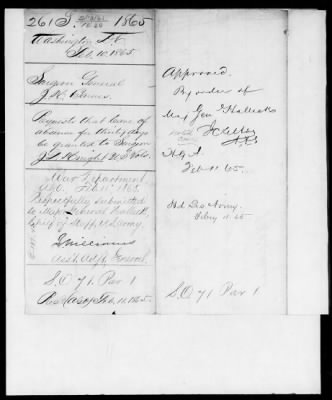 261 S. 1865
Washington D.C.
Feb. 10. 1865.
Surgeon General
J. K. Barnes.
Requests that leave of
absence for thirty days
be granted to Surgeon
J. S. Knight U.S. Vols.
War Department
A.G.O. Feb 11" 1865
Respectfully submitted
to Major General Halleck
Chief of Staff, U.S. Army.
Williams
Asst. Adjt. General.
S.O 71. Par 1
Feb. 11. 1865.
Approved.
By order of
Maj Gen Halleck
Feb 11 65.
Hd Qrs Army.
Feby 11. 65
S.O 71 Par 1